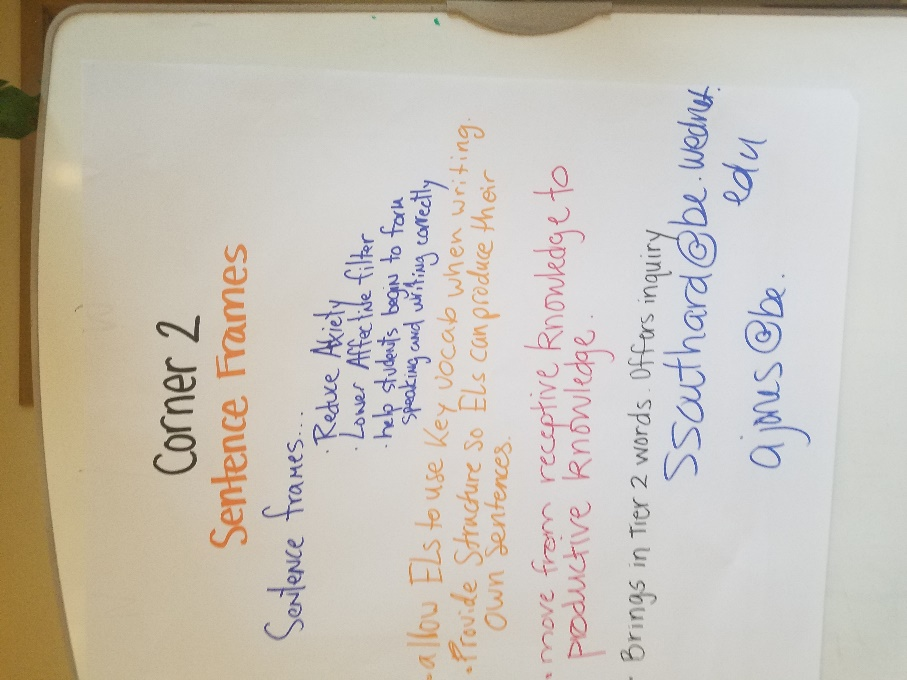 Corner 2
Sentence Frames
Sentence frames...
· Reduce Axiety
· Lower Affective filter
· help students begin to form
speaking and writing correctly
· allow ELs to use Key vocab when writing.
· Provide Structure so ELs can produce their
own sentences.
· move from receptive knowledge to
productive knowledge.
· Brings in Tier 2 words. Offers inquiry
@be.wednet.
edu
@be.